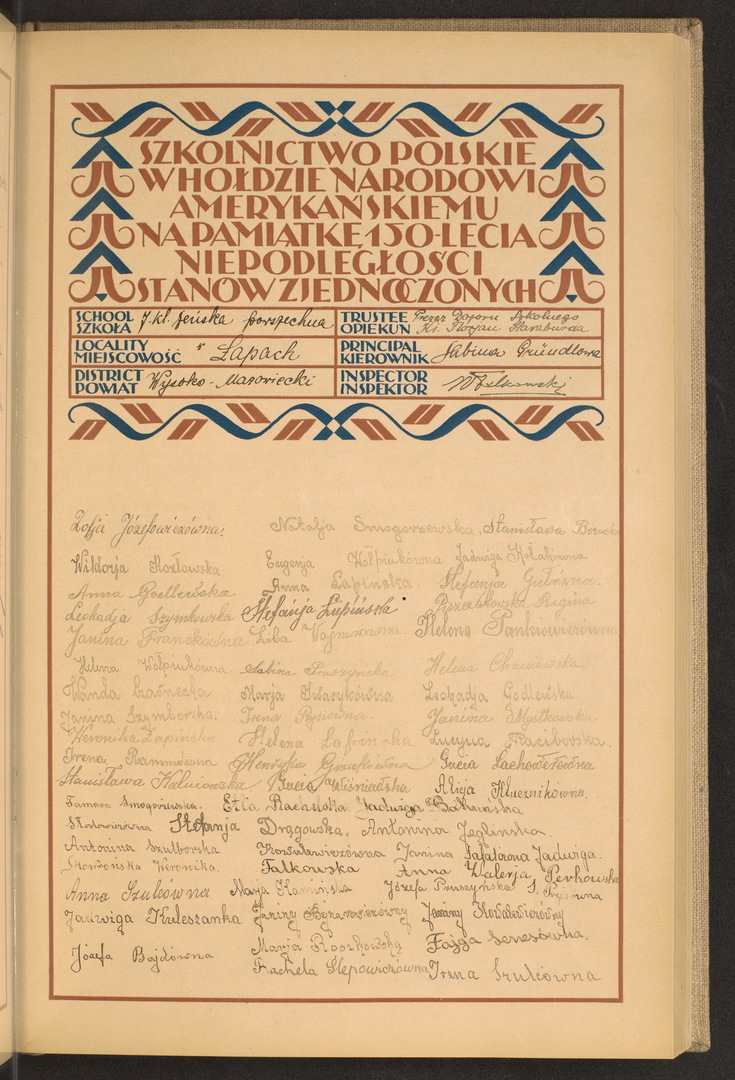 SZKOLNICTWO POLSKIE
W HOŁDZIE NARODOWI
AMERYKAŃSKIEMU
NA PAMIĄTKĘ 150-LECIA
NIEPODLEGŁOŚCI
STANÓW ZJEDNOCZONYCH
SCHOOL SZKOŁA 7. kl. żeńska powszechna
TRUSTEE OPIEKUN Prezes Dozoru Szkolnego Ks. Floryan Haraburda
LOCALITY MIEJSCOWOŚĆ w Łapach
PRINCIPAL KIEROWNIK Sabina Gründlowa
DISTRICT POWIAT Wysoko-Mazowiecki
INSPECTOR INSPEKTOR
Zofja Józefowiczówna.
Natalja Smogorzewska, Stanisława
Wiktorja Kozłowska. Eugenja Wołpiukówna Jadwiga Kołakówna
Anna Godlewska Anna Łapińska. Stefanja
Leokadja Szymkowska Stefańja Łupińska Regina
Janina Franckówna Liba Helena Pankiewiczówna
Helena Wołpiukówna. Sabina Pruszyńska Helena
Wanda Czarnecka Marja Leokadja Godlewska
Janina Szymborska. Irena Rysiówna. Janina Mystkowska
Weronika Łapińska Helena Łapińska Lucyna Raciborska.
Irena Henryka Łucja
Stanisława Łucja Wiśniewska Alicja Klucznikówna.
Tamara Smogorzewska. Etla Jadwiga
Stefanja Drągowska. Antonina Jeglinska.
Antonina Szulborska Kowalewiczówna Janina Jadwiga.
Weronika. Falkowska Anna Walerja
Anna Szulcówna Marja Kamińska Józefa Pruszyńska S. Rysiówna
Jadwiga Kuleszanka Janiny Janiny Kowalewiczówny
Józefa Bajdówna Marja Roszkowska Fajga
Rachela Ślepowiczówna Irena Szulcówna